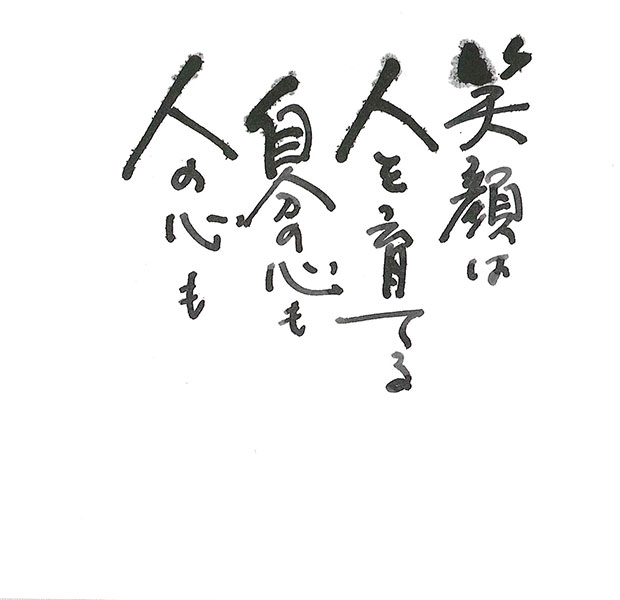 笑顔は
人を育てる
自分の心も
人の心も